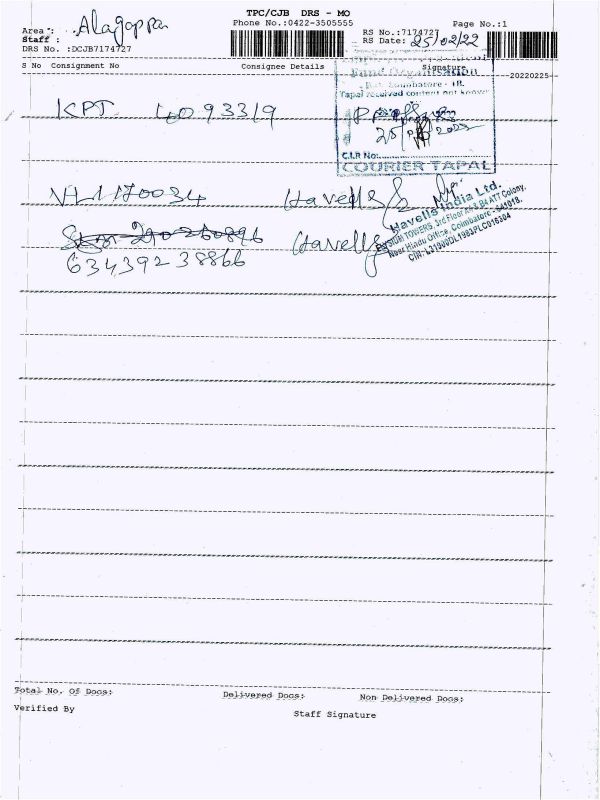 TPC/CJB DRS - MO
Phone No.:0422-3505555
Page No.:1
Area : Alagappa
Staff :
DRS No. :DCJB7174727
RS No.:7174727
RS Date: 25/02/22
S No Consignment No Consignee Details Signature
20220225
Fund Organisation
Coimbatore - 18.
Tapal received content not known
KPT 4093319
25
C.I.R No:
COURIER TAPAL
Havells
Havells India Ltd.
TOWERS, 3rd Floor A4 & B4 ATT Colony,
Near Hindu Office, Coimbatore - 641018.
CIN: L31900DL1983PLC016304
Havells
63439238866
Total No. Of Docs: Delivered Docs: Non Delivered Docs:
Verified By
Staff Signature